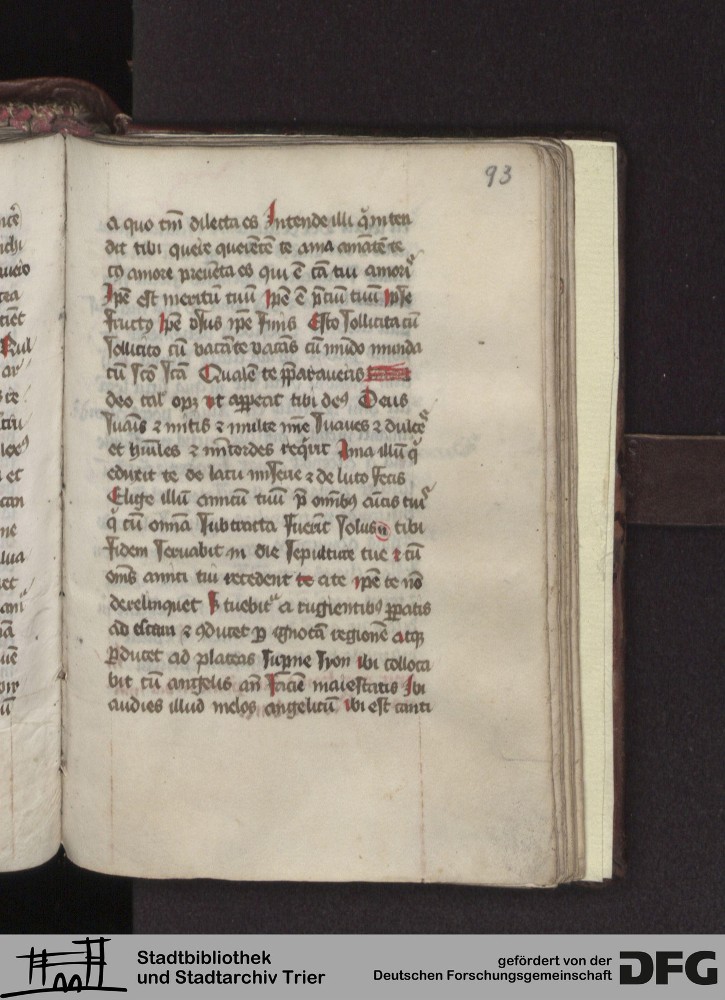 93
a quo tm̄ dilecta es Intende illi q̄ inten
dit tibi quere querētē te ama amātē te
amore preuēta es qui ē cā tui amoris
Ipē est meritū tuū Ipē ē p̄ciū tuū Ipse
fructꝯ Ipē vsus ipe finis Esto sollicita cū
sollicito cū vacāte vacās cū mūdo munda
cū scō scā Qualē te p̄paraueris
deo tal oꝫ vt appeat tibi deꝰ Deus
suauis ⁊ mitis ⁊ multe mīe suaues ⁊ dulces
et hūiles ⁊ mīcordes reqrit Ama illū q̄
eduxit te de lacu miserie ⁊ de luto fecis
Elige illū amicū tuū p̄ omībꝰ amicis tuis
q̄ cū omīa subtracta fuerīt solus tibi
fidem seruabit in die sepulture tue ⁊ cū
oms amici tui recedent a te ipe te nō
derelinquet tuebitʳ a rugientibꝰ p̄patis
ad escam ⁊ ꝯducet ꝑ ignotā regionē atqꝫ
ꝑducet ad plateas supne syon ibi colloca
bit cū angelis an̄ faciē maiestatis Ibi
audies illud melos angelicū ibi est canti
Stadtbibliothek
und Stadtarchiv Trier
gefördert von der
Deutschen Forschungsgemeinschaft
DFG